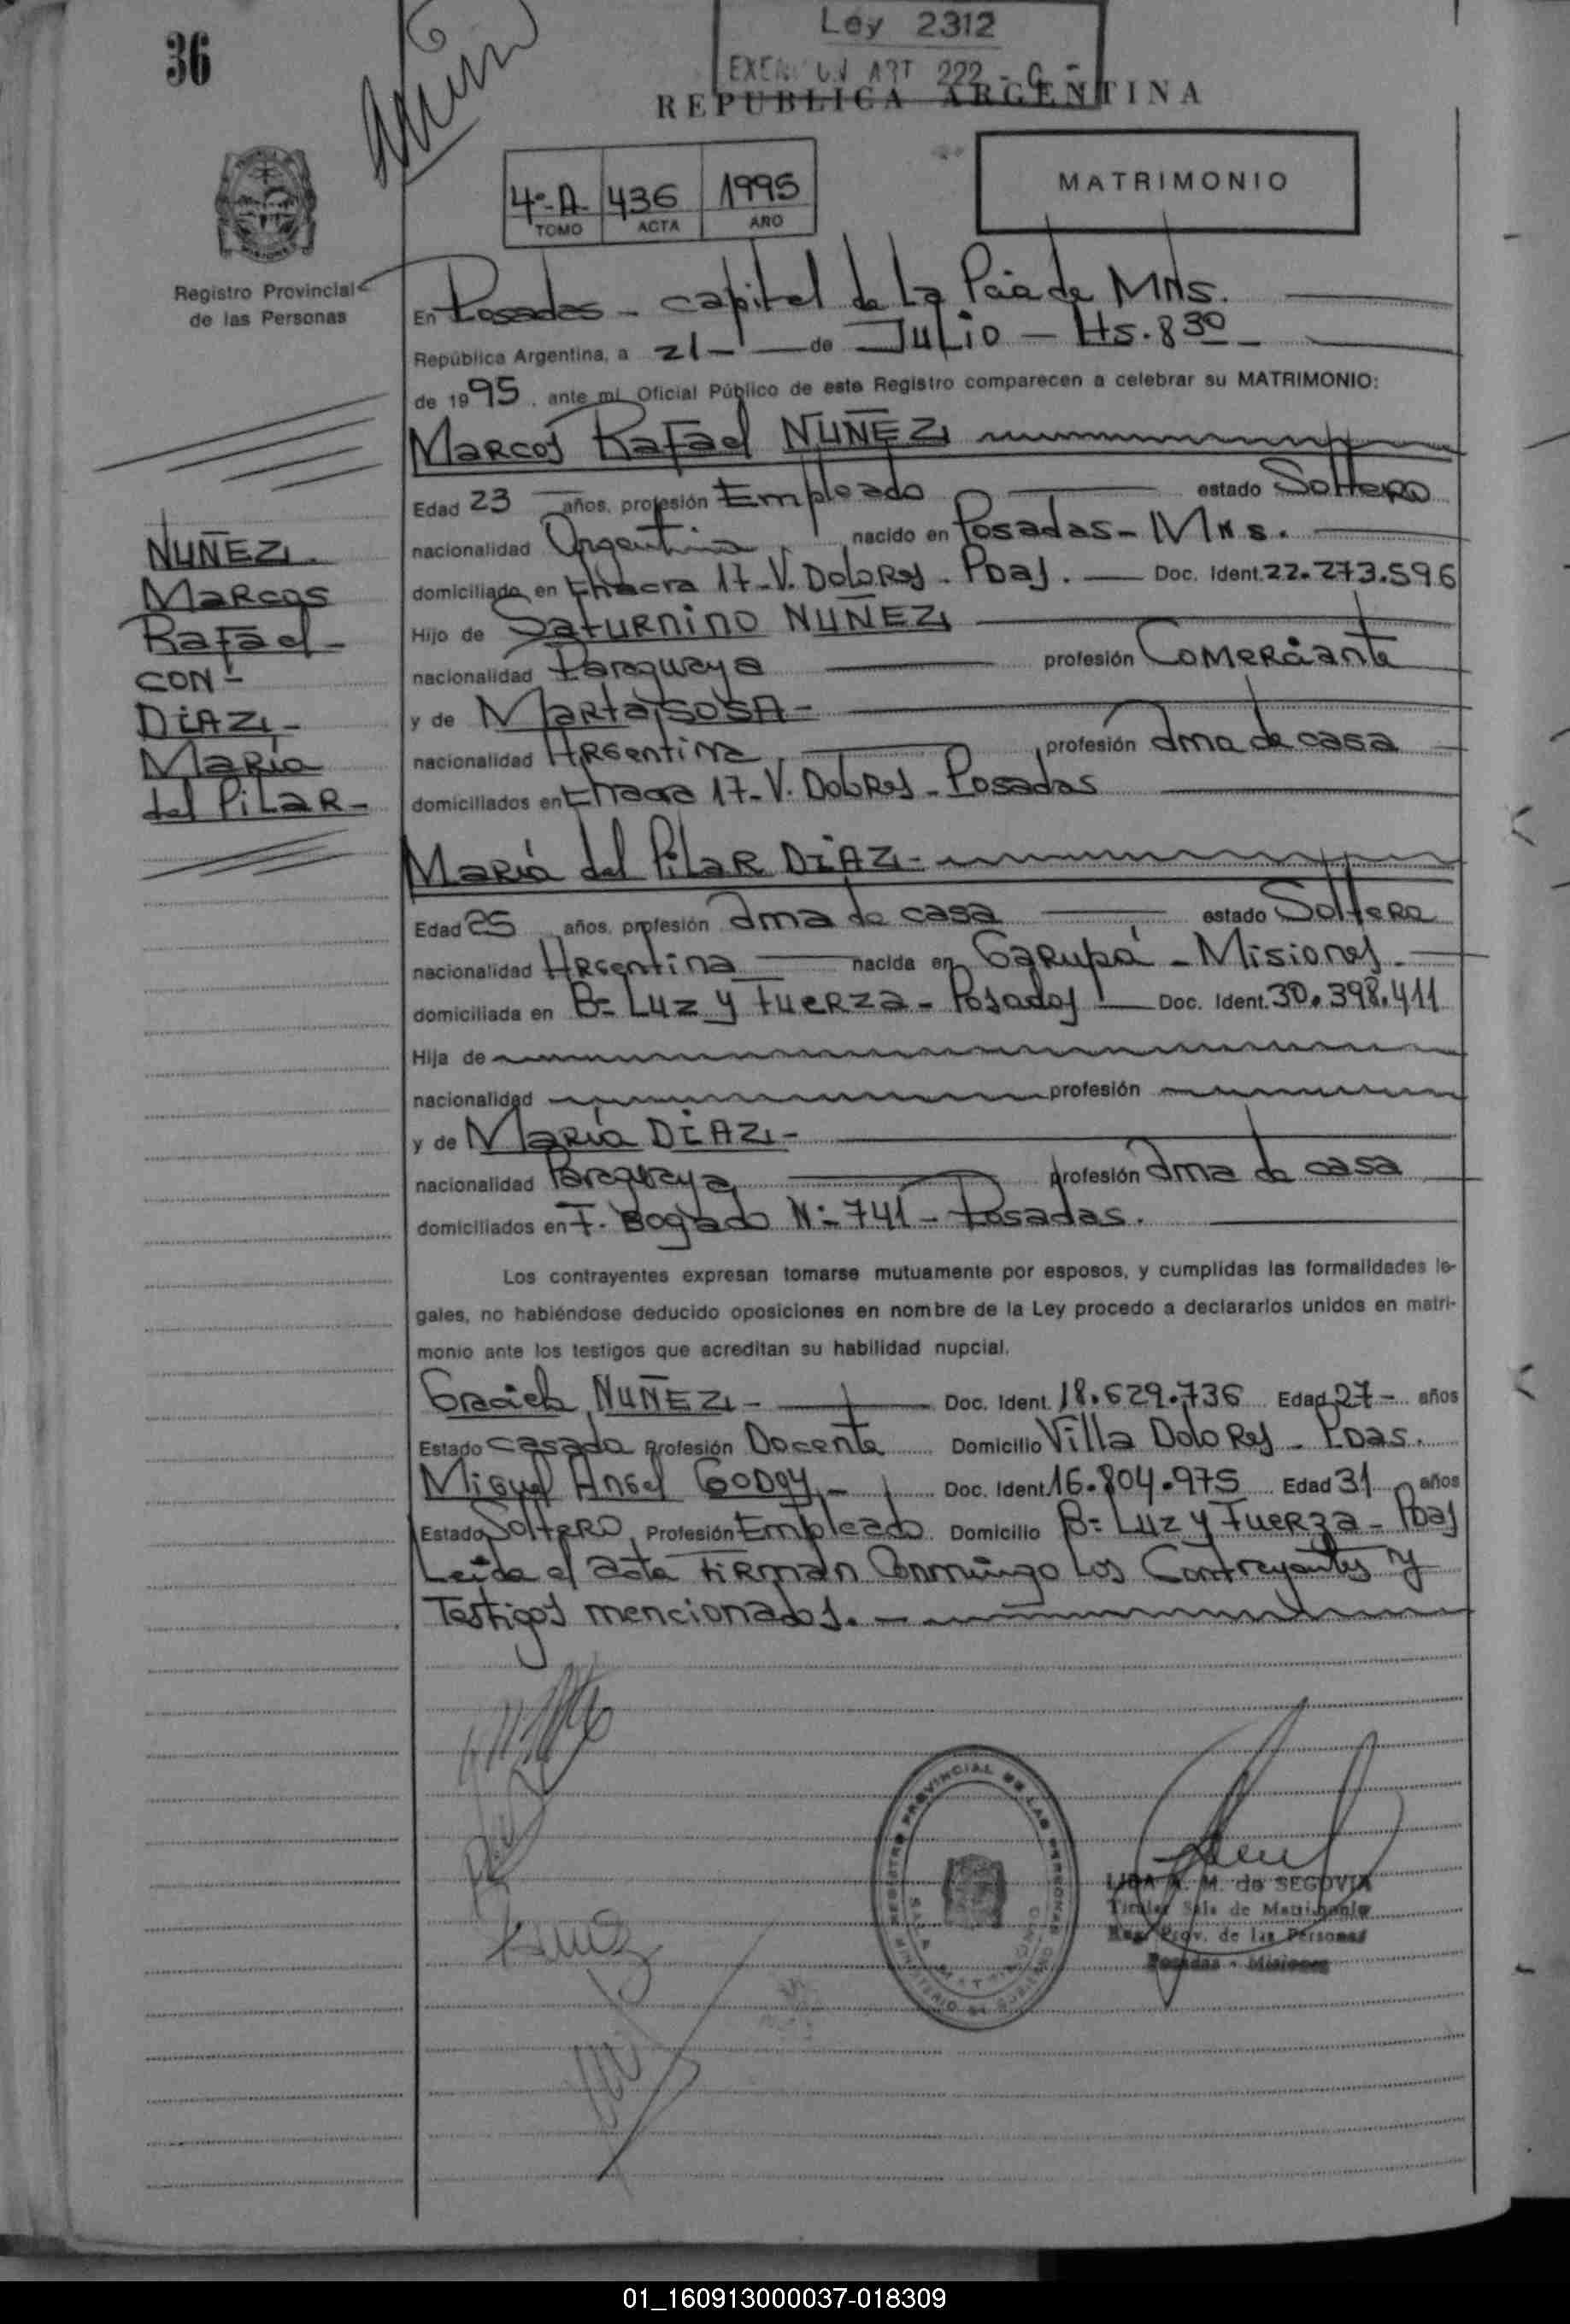 36
Ley 2312
ART 222
REPUBLICA ARGENTINA
4º-A 436 1995
TOMO ACTA AÑO
MATRIMONIO
Registro Provincial
de las Personas
En Posadas - capital de La Pcia de MNS.
República Argentina, a 21 - de JULIO - Hs. 8 30 -
de 1995, ante mi Oficial Público de este Registro comparecen a celebrar su MATRIMONIO:
Marcos Rafael NUÑEZ
Edad 23 años, profesión Empleado estado Soltero
nacionalidad Argentina nacido en Posadas - MNS.
domiciliado en Chacra 17 - V. Dolores - Pdas. Doc. Ident. 22.273.596
Hijo de Saturnino NUÑEZ
nacionalidad Paraguaya profesión Comerciante
y de Marta SOSA -
nacionalidad Argentina profesión Ama de casa
domiciliados en Chacra 17 - V. Dolores - Posadas
NUÑEZ
Marcos
Rafael -
CON -
DIAZ -
María
del Pilar -
María del Pilar DIAZ -
Edad 25 años, profesión Ama de casa estado Soltera
nacionalidad Argentina nacida en Garupá - Misiones -
domiciliada en Bº Luz y Fuerza - Posadas Doc. Ident. 30.398.411
Hija de
nacionalidad profesión
y de María DIAZ -
nacionalidad Paraguaya profesión Ama de casa
domiciliados en F. Bogado Nº 741 - Posadas.
Los contrayentes expresan tomarse mutuamente por esposos, y cumplidas las formalidades le-
gales, no habiéndose deducido oposiciones en nombre de la Ley procedo a declararlos unidos en matri-
monio ante los testigos que acreditan su habilidad nupcial.
Graciela NUÑEZ - Doc. Ident. 18.629.736 Edad 27 - años
Estado casada Profesión Docente Domicilio Villa Dolores - Pdas.
Miguel Angel GODOY - Doc. Ident. 16.804.975 Edad 31 años
Estado Soltero Profesión Empleado Domicilio Bº Luz y Fuerza - Pdas
Leída el acta Firman Conmingo Los Contrayentes y
Testigos mencionados. -
REGISTRO PROVINCIAL DE LAS PERSONAS
MINISTERIO DE GOBIERNO
M. de SEGOVIA
Titular Sala de Matrimonio
Reg. Prov. de las Personas
Posadas - Misiones
01_160913000037-018309